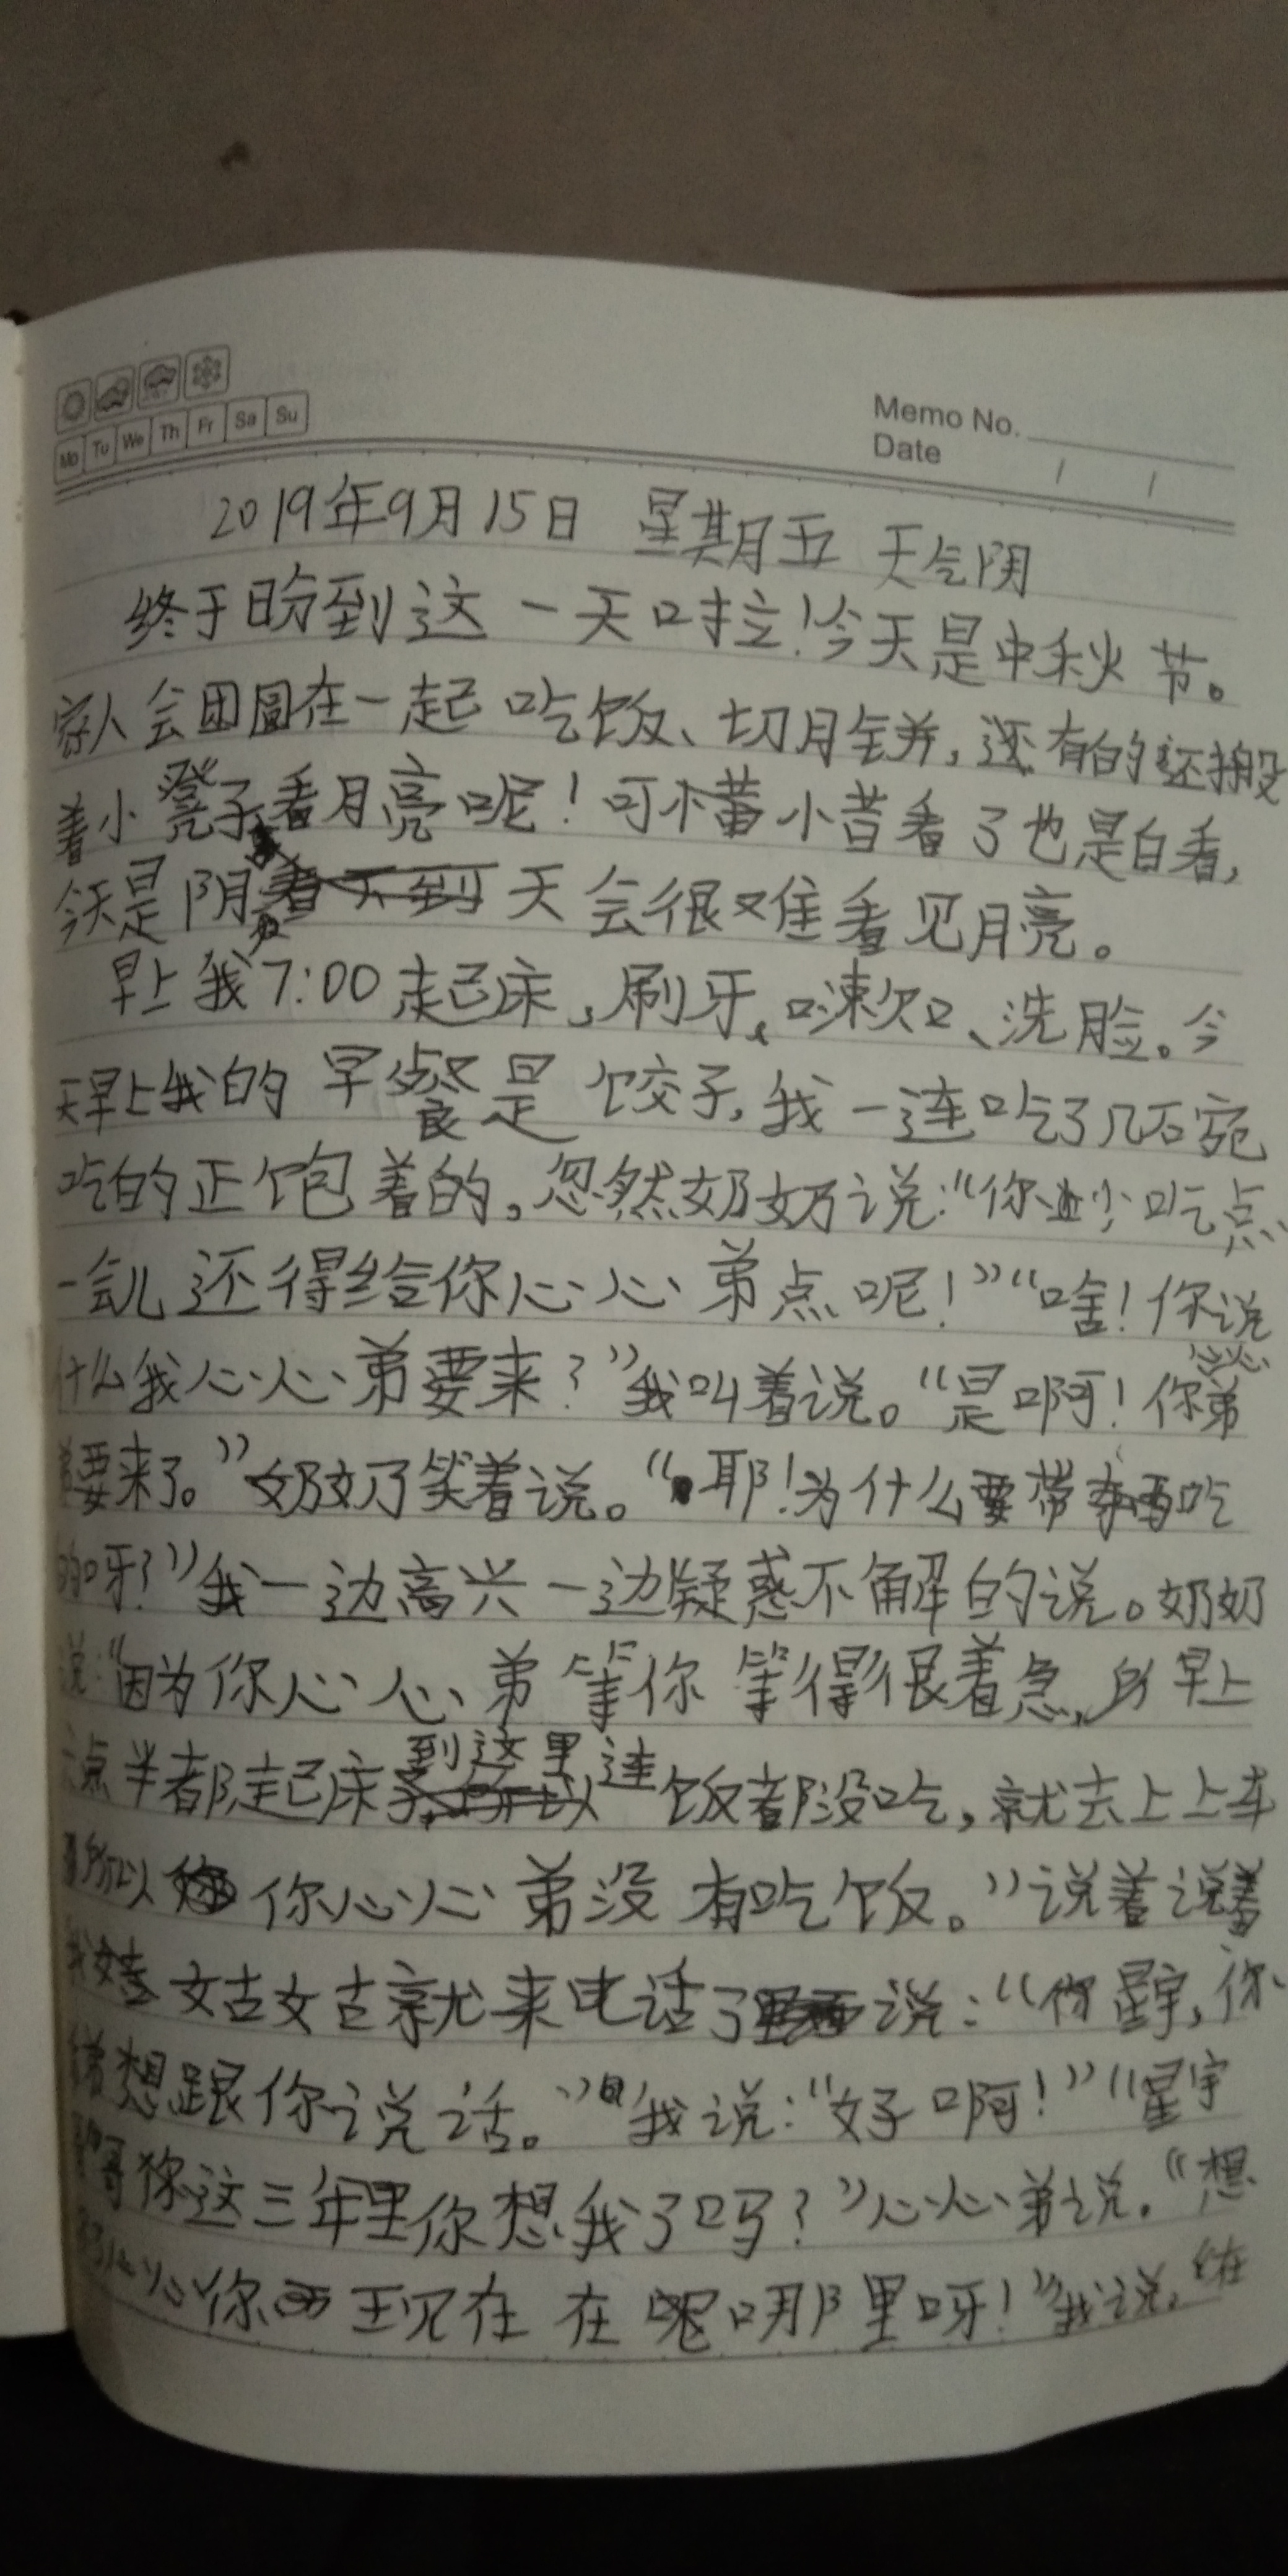 Mo Tu We Th Fr Sa Su
Memo No.
Date / /
2019年9月15日 星期五 天气阴
终于盼到这一天啦!今天是中秋节。
家人会团圆在一起吃饭、切月饼,还有的还搬
着小凳子看月亮呢!可惜看了也是白看,
今天是阴天会很难看见月亮。
早上我7:00起床、刷牙、漱口、洗脸。今
天早上我的早餐是饺子,我一连吃了几碗
吃的正饱着的。忽然奶奶说:“你少吃点
一会儿还得给你心心弟点呢!”“啥!你说
什么我心心弟要来?”我叫着说。“是啊!你心心弟
要来了。”奶奶笑着说。“耶!为什么要带东西吃
的呀?”我一边高兴一边疑惑不解的说。奶奶
说:“因为你心心弟等你等得很着急,所早上
点半都起床到这里连饭都没吃,就去上上车
所以你心心弟没有吃饭。”说着说着
我姑姑就来电话了说:“星宇,你
想跟你说话。”我说:“好啊!”“星宇
哥你这三年里你想我了吗?”心心弟说。“想
心心你现在在哪里呀!”我说。“在